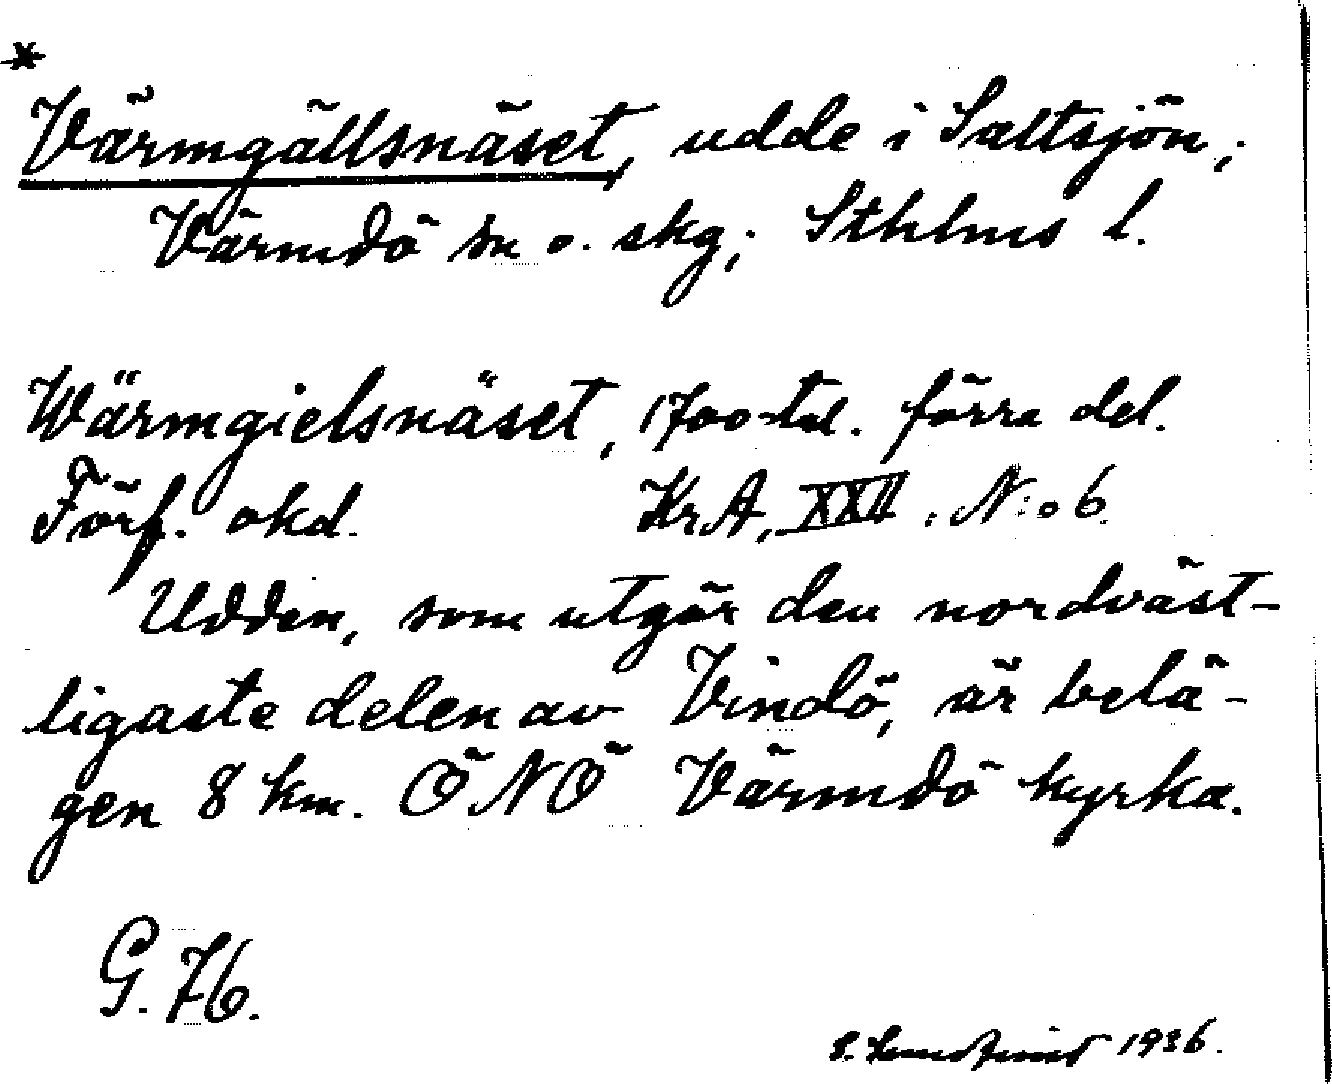 *
Värmgällsnäset, udde i Saltsjön;
Värmdö sn o. skg; Sthlms l.
Wärmgielsnäset, 1700-tal. förra del.
Förf. okd. KrA, XXII. N:o 6.
Udden, som utgör den nordväst-
ligaste delen av Vindö, är belä-
gen 8 km. ÖNÖ Värmdö kyrka.
G. 76.
S. 1936.